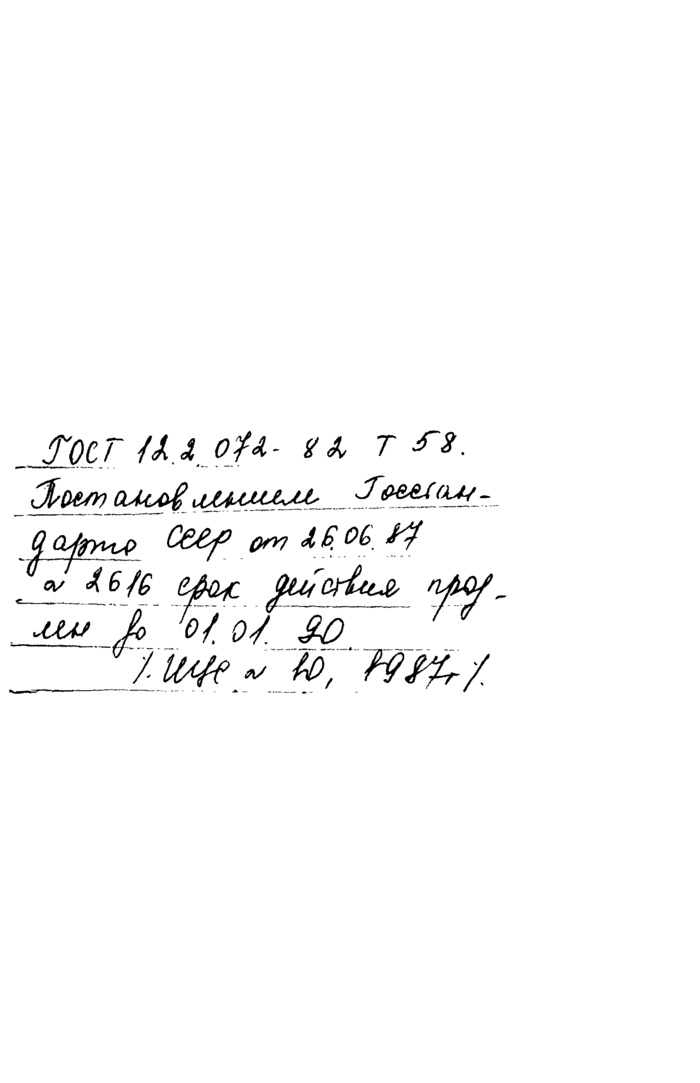 ГОСТ 12.2.072-82 Т 58.
Постановлением Госстан-
дарта СССР от 26.06.87
№ 2616 срок действия прод-
лен до 01.01.90
/. ИУС № 10, 1987г /.